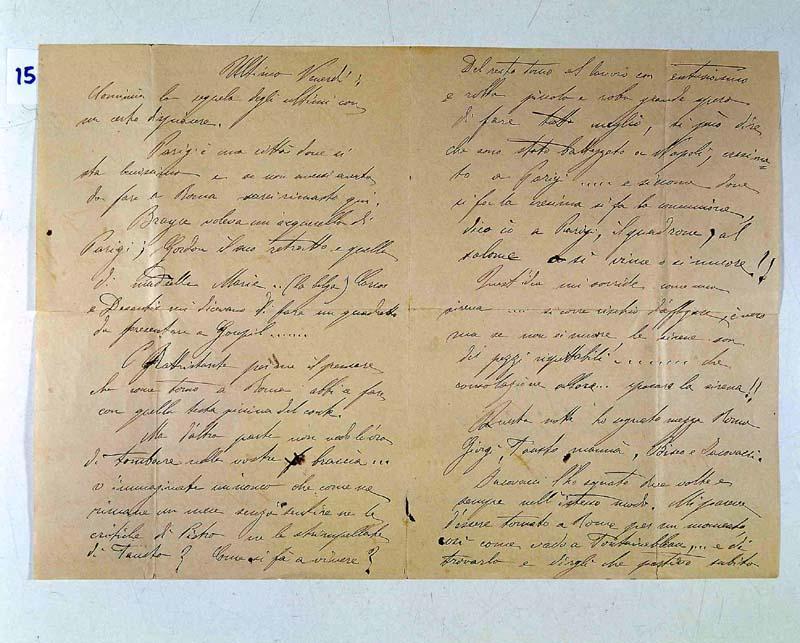 15
Ultimo Venerdì;
Comincia la seguela degli ultimi con
un certo
Parigi è una città dove si
sta benissimo e se non avessi avuto
da fare a Roma sarei rimasto qui.
voleva un acquarello di
Parigi, Gordon il suo ritratto e quello
di Marie... (la bella)
e mi dicevano di fare un quadretto
da presentare a Goupil......
È per me il pensare
che come torno a Roma abbia a fare
con quella testa del conte.
Ma d'altra parte non vedo l'ora
di tombare nelle vostre braccia...
v'immaginate un uomo che come me
rimane un mese senza sentire ne le
di ne le strampalate
di Fausto? Come si fa a vivere?
Del resto torno al lavoro con entusiasmo
e piccola o roba grande spero
di fare tutto meglio, si può dire
che sono stato battezzato a Napoli, cresima=
to a Parigi..... e siccome dove
si fa la cresima si fa la comunione,
dico io a Parigi, il quadrone, al
salone o si vince o si muore!!
Quest'idea mi sorride come una
sirena.... si corre rischio d'affogare, è vero
ma se non si muore, le sirene son
dei pezzi rispettabili......... che
consolazione allora... sposare la sirena!!
Questa notte ho sognato mezza Roma
Giorgi, Fausto, mammà, e Jacovacci.
Jacovacci l'ho sognato due volte e
sempre nell'istesso modo. Mi pareva
d'essere tornato a Roma per un momento,
così come vado a Fontainebleau,... e di
trovarlo e dirgli che partivo subito